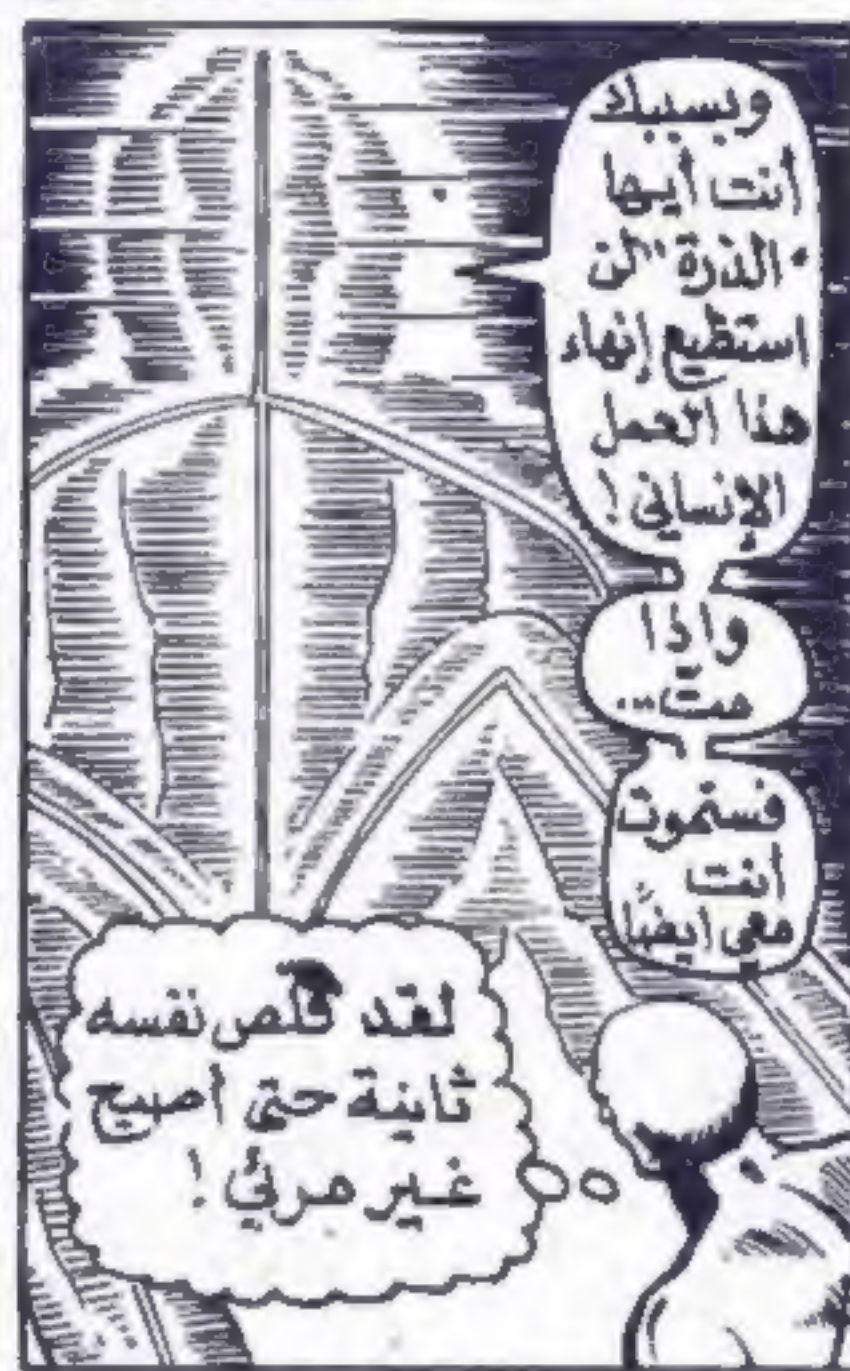 وبسببك
أنت أيها
"الذرة" لن
استطيع إنهاء
هذا العمل
الإنساني!
وإذا
متّ...
فستموت
أنت
معي أيضًا
لقد قلّص نفسه
ثانية حتى أصبح
غير مرئي!